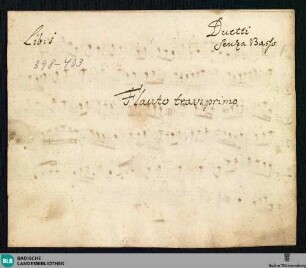 Lib: 1
Duetti
Senza Basso
898-903
Flauto traversprimo
BLB
BADISCHE
LANDESBIBLIOTHEK
Baden-Württemberg